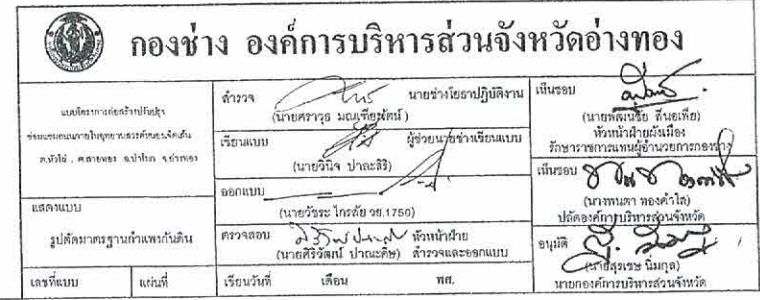 กองช่าง องค์การบริหารส่วนจังหวัดอ่างทอง
แบบโครงการก่อสร้างปรับปรุง
ซ่อมแซมถนนภายในอุทยานสวรรค์หนองเจ็ดเส้น
ต.หัวไผ่ , ต.สายทอง อ.ป่าโมก จ.อ่างทอง
แสดงแบบ
รูปตัดมาตรฐานกำแพงกันดิน
เลขที่แบบ แผ่นที่
สำรวจ นายช่างโยธาปฏิบัติงาน
(นายศราวุธ มณเฑียรัตน์)
เขียนแบบ ผู้ช่วยนายช่างเขียนแบบ
(นายวินิจ ปาละสิริ)
ออกแบบ
(นายวัชระ ไกรลัย วย.1750)
ตรวจสอบ หัวหน้าฝ่าย
(นายศิริวัฒน์ ปาณะดิษ) สำรวจและออกแบบ
เขียนวันที่ เดือน พศ.
เห็นชอบ
(นายพัฒนชัย ลิ้นเฮี้ย)
หัวหน้าฝ่ายผังเมือง
รักษาราชการแทนผู้อำนวยการกองช่าง
เห็นชอบ
(นางพนดา ทองคำใส)
ปลัดองค์การบริหารส่วนจังหวัด
อนุมัติ
(นายสุรเชษ นิ่มกุล)
นายกองค์การบริหารส่วนจังหวัด